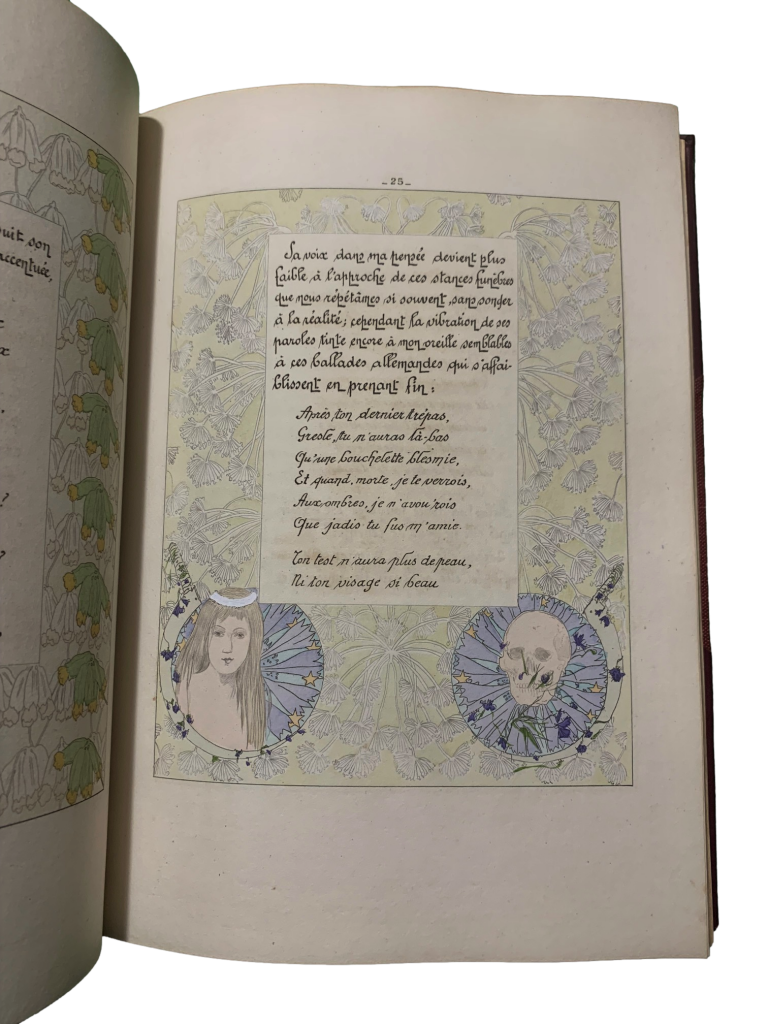 son
accentuée,
_ 25 _
Sa voix dans ma pensée devient plus
faible à l'approche de ces stances funèbres
que nous répétâmes si souvent, sans songer
à la réalité; cependant la vibration de ses
paroles tinte encore à mon oreille semblables
à ces ballades allemandes qui s'affai-
blissent en prenant fin :
Après ton dernier trépas,
Gresle, tu n'auras là-bas
Qu'une bouchelette blesmie,
Et quand, morte, je te verrois,
Aux ombres, je n'avou'rois
Que jadis tu fus m'amie.
Ton test n'aura plus de peau,
Ni ton visage si beau